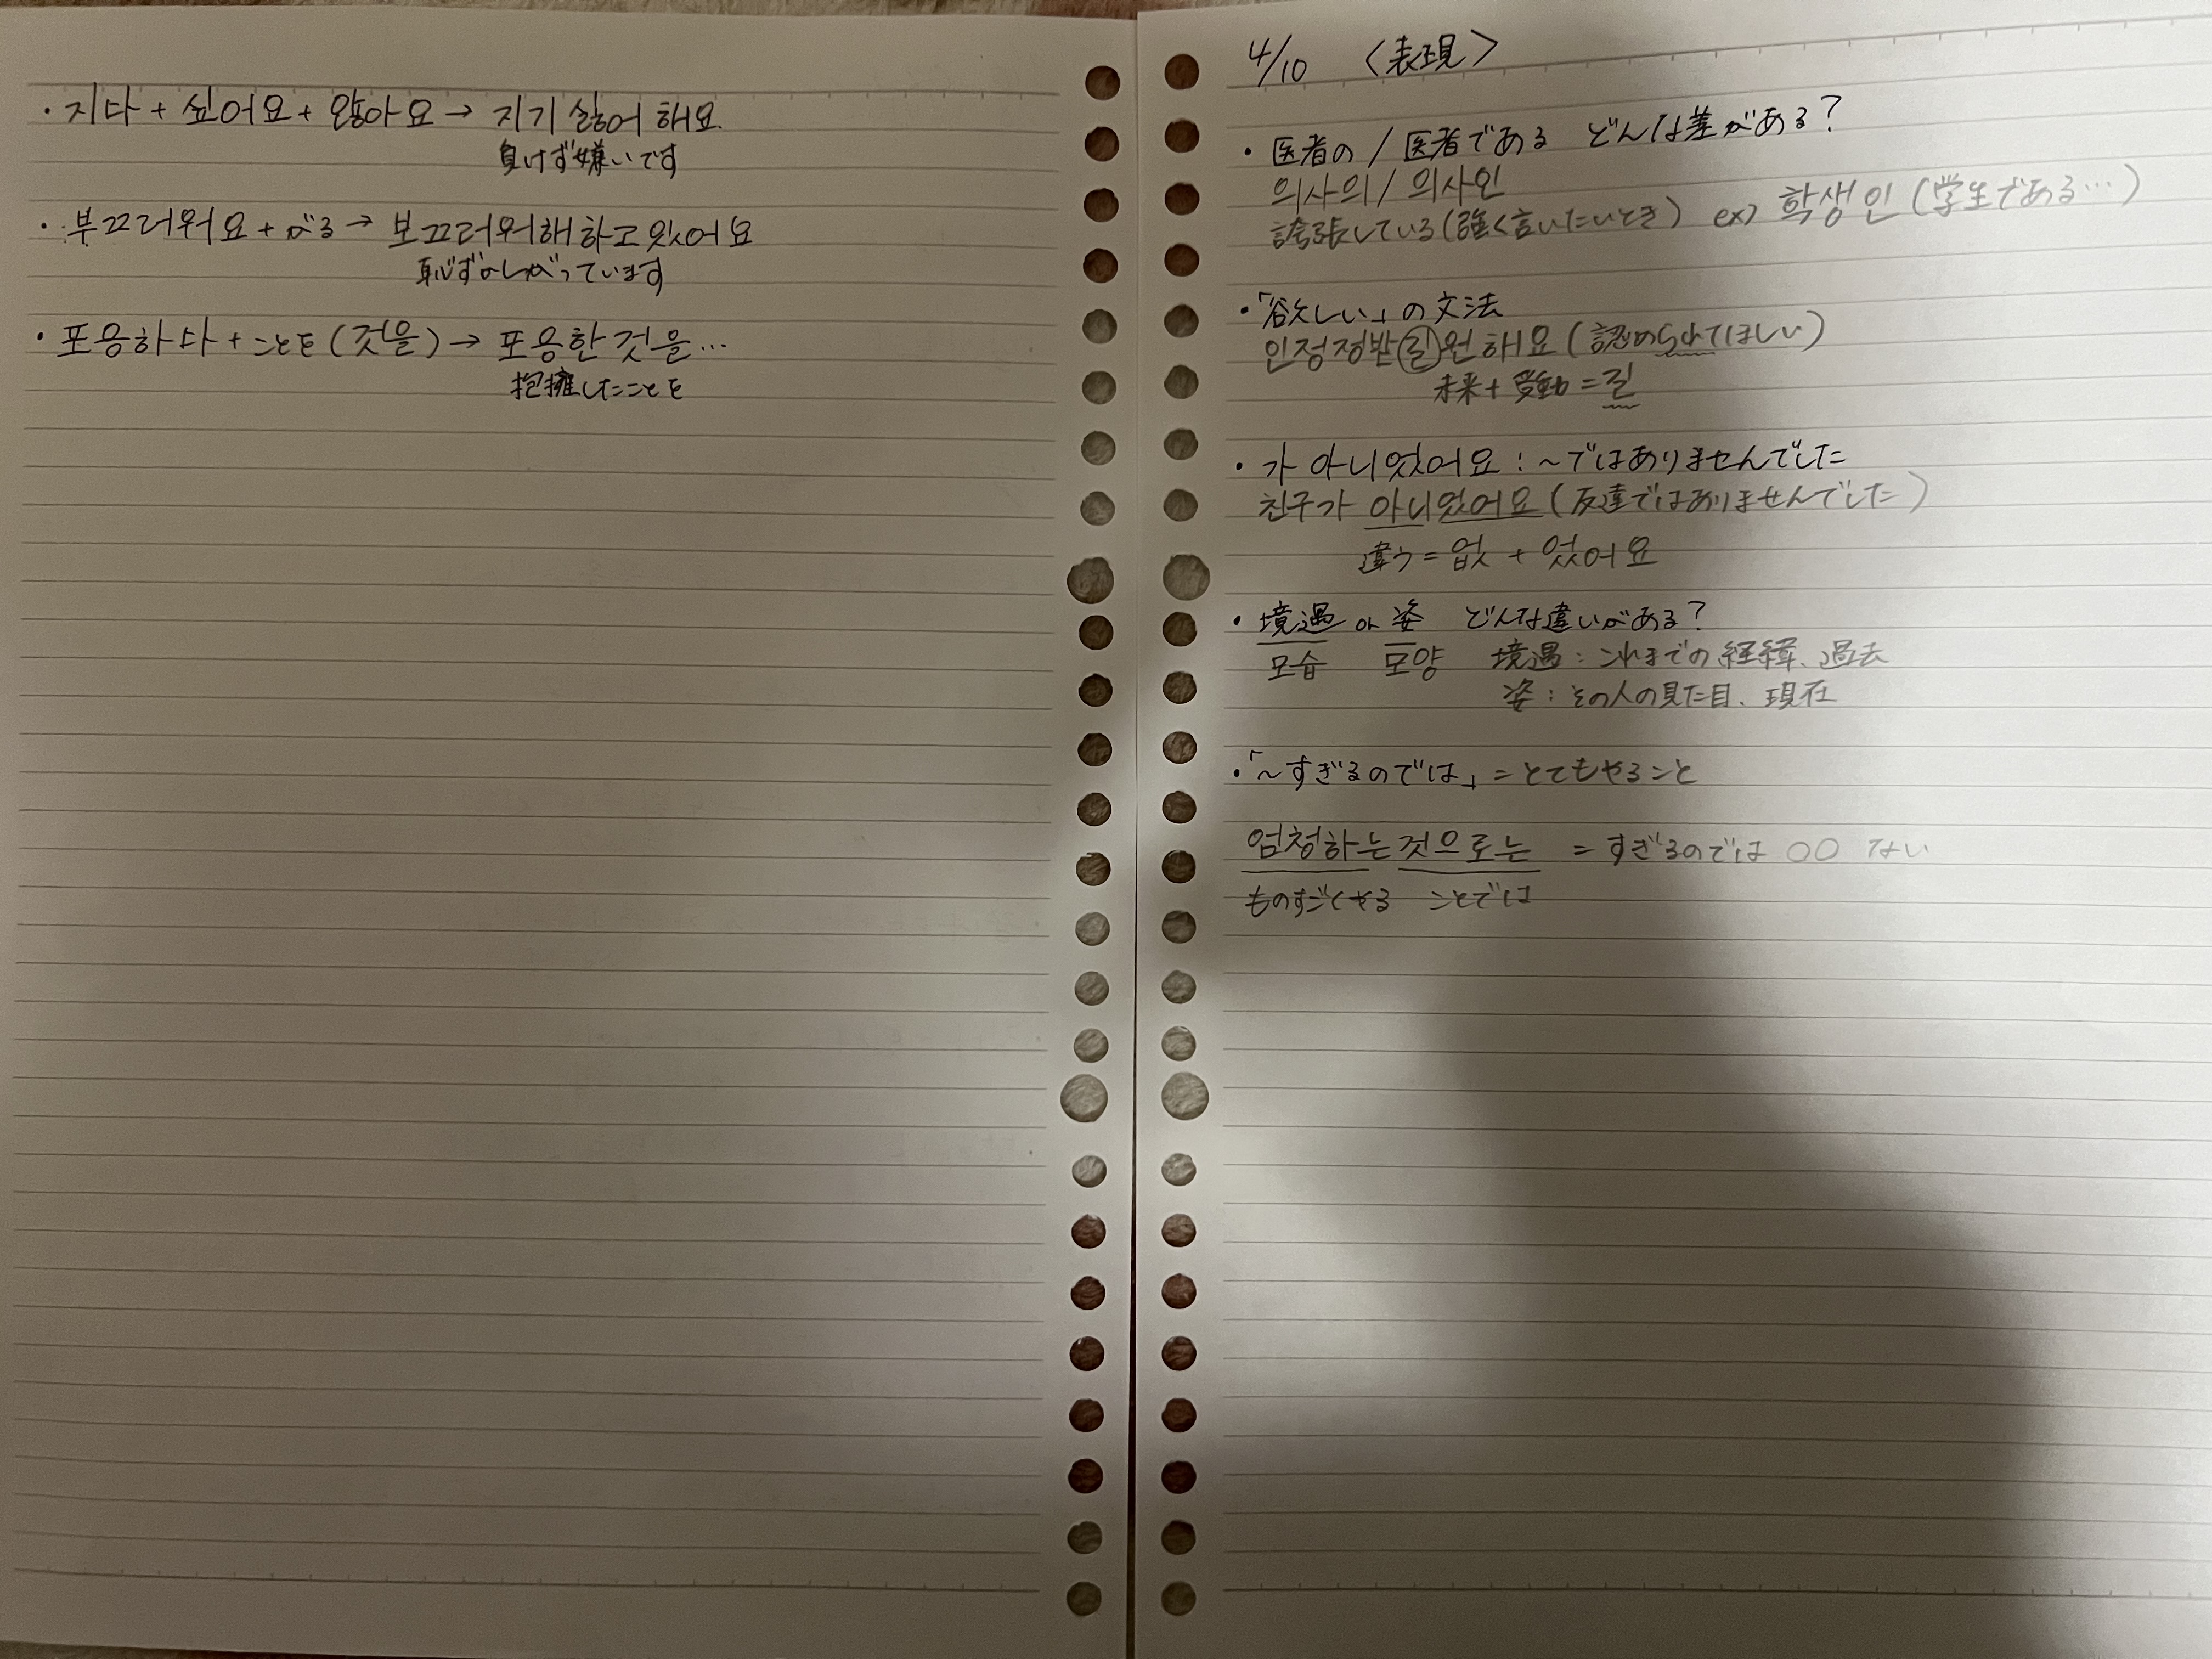 ・지다 + 싶어요 + 않아요 → 지기 싫어 해요.
負けず嫌いです
・부끄러워요 + がる → 보끄러워해하고 있어요
恥ずかしがっています
・포옹하다 + ことを (것을) → 포옹한 것을…
抱擁したことを
4/10 〈表現〉
・医者の / 医者である どんな差がある?
의사의 / 의사인
誇張している(強く言いたいとき) ex) 학생인 (学生である…)
・「欲しい」の文法
인정정받길원해요 (認められてほしい)
未来+受動=길
・가 아니었어요 : ~ではありませんでした
친구가 아니었어요 (友達ではありませんでした)
違う = 없 + 었어요
・境遇 or 姿 どんな違いがある?
모습 모양 境遇:これまでの経緯、過去
姿:その人の見た目、現在
・「~すぎるのでは」=とてもやること
엄청하는 것으로는 =すぎるのでは ○○ ない
ものすごくやる ことでは